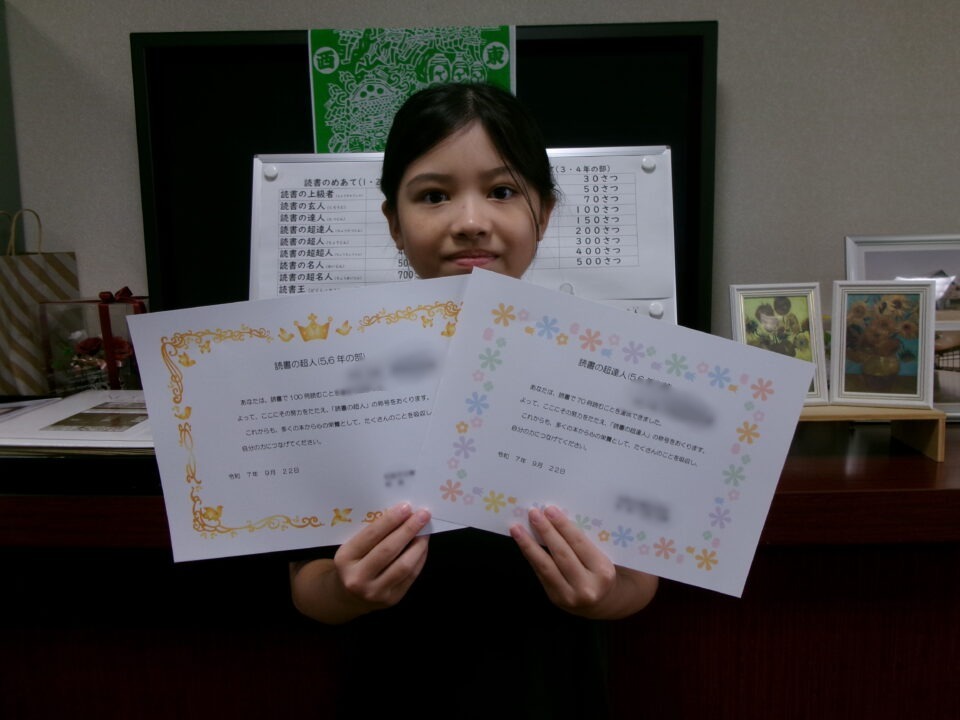 西
東
読書のめあて(1・2
読書の上級者
読書の玄人
読書の達人
読書の超達人
読書の超人
読書の超超人
読書の名人
読書の超名人
読書王
700
(3・4年の部)
30さつ
50さつ
70さつ
100さつ
150さつ
200さつ
300さつ
400さつ
500さつ
読書の超人(5,6年の部)
あなたは、読書で100冊読むことを
よって、ここにその努力をたたえ、「読書の超人」の称号をおくります。
これからも、多くの本から心の栄養として、たくさんのことを吸収し、
自分の力につなげてください。
令和 7年 9月 22日
読書の超達人(5,6年の部)
あなたは、読書で70冊読むことを達成できました。
よって、ここにその努力をたたえ、「読書の超達人」の称号をおくります。
これからも、多くの本から心の栄養として、たくさんのことを吸収し、
自分の力につなげてください。
令和 7年 9月 22日